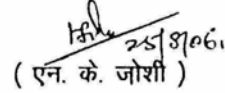 25/8/06.
( एन. के. जोशी )